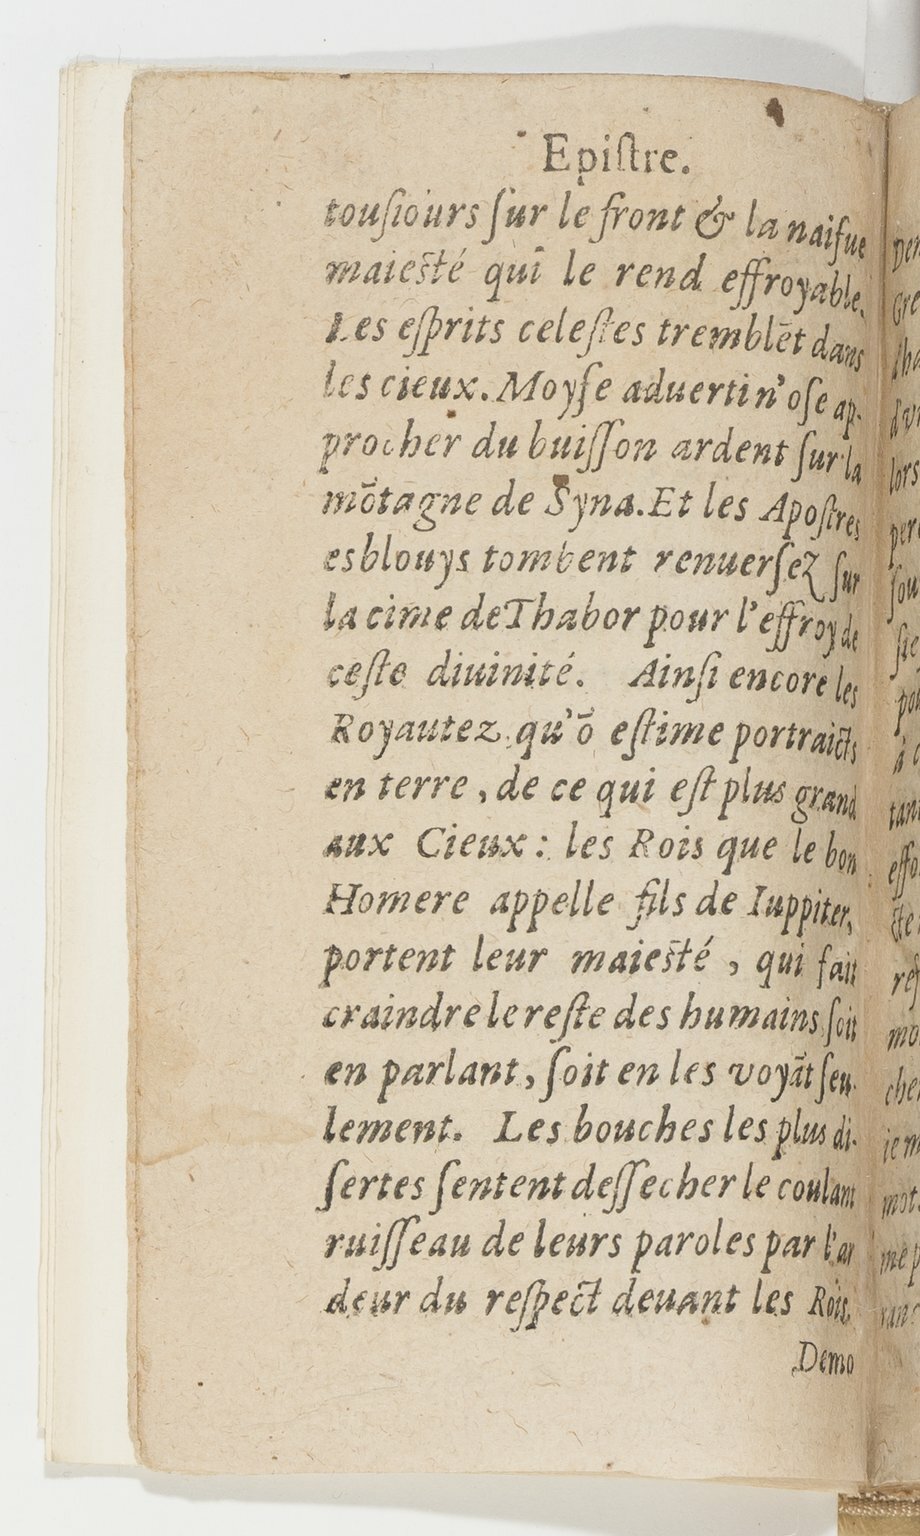 Epiſtre.
touſiours ſur le front & la naifue
maieſté qui le rend effroyable.
Les eſprits celeſtes tremblēt dans
les cieux. Moyſe aduerti n'oſe ap-
procher du buiſſon ardent ſur la
mōtagne de Syna. Et les Apoſtres
esblouys tombent renuerſez ſur
la cime de Thabor pour l'effroy de
ceſte diuinité. Ainſi encore les
Royautez qu'ō eſtime portraicts
en terre, de ce qui eſt plus grand
aux Cieux: les Rois que le bon
Homere appelle fils de Iuppiter,
portent leur maieſté, qui fait
craindre le reſte des humains ſoit
en parlant, ſoit en les voyāt ſeu-
lement. Les bouches les plus di-
ſertes ſentent deſſecher le coulant
ruiſſeau de leurs paroles par l'ar
deur du reſpect deuant les Rois.
Demo